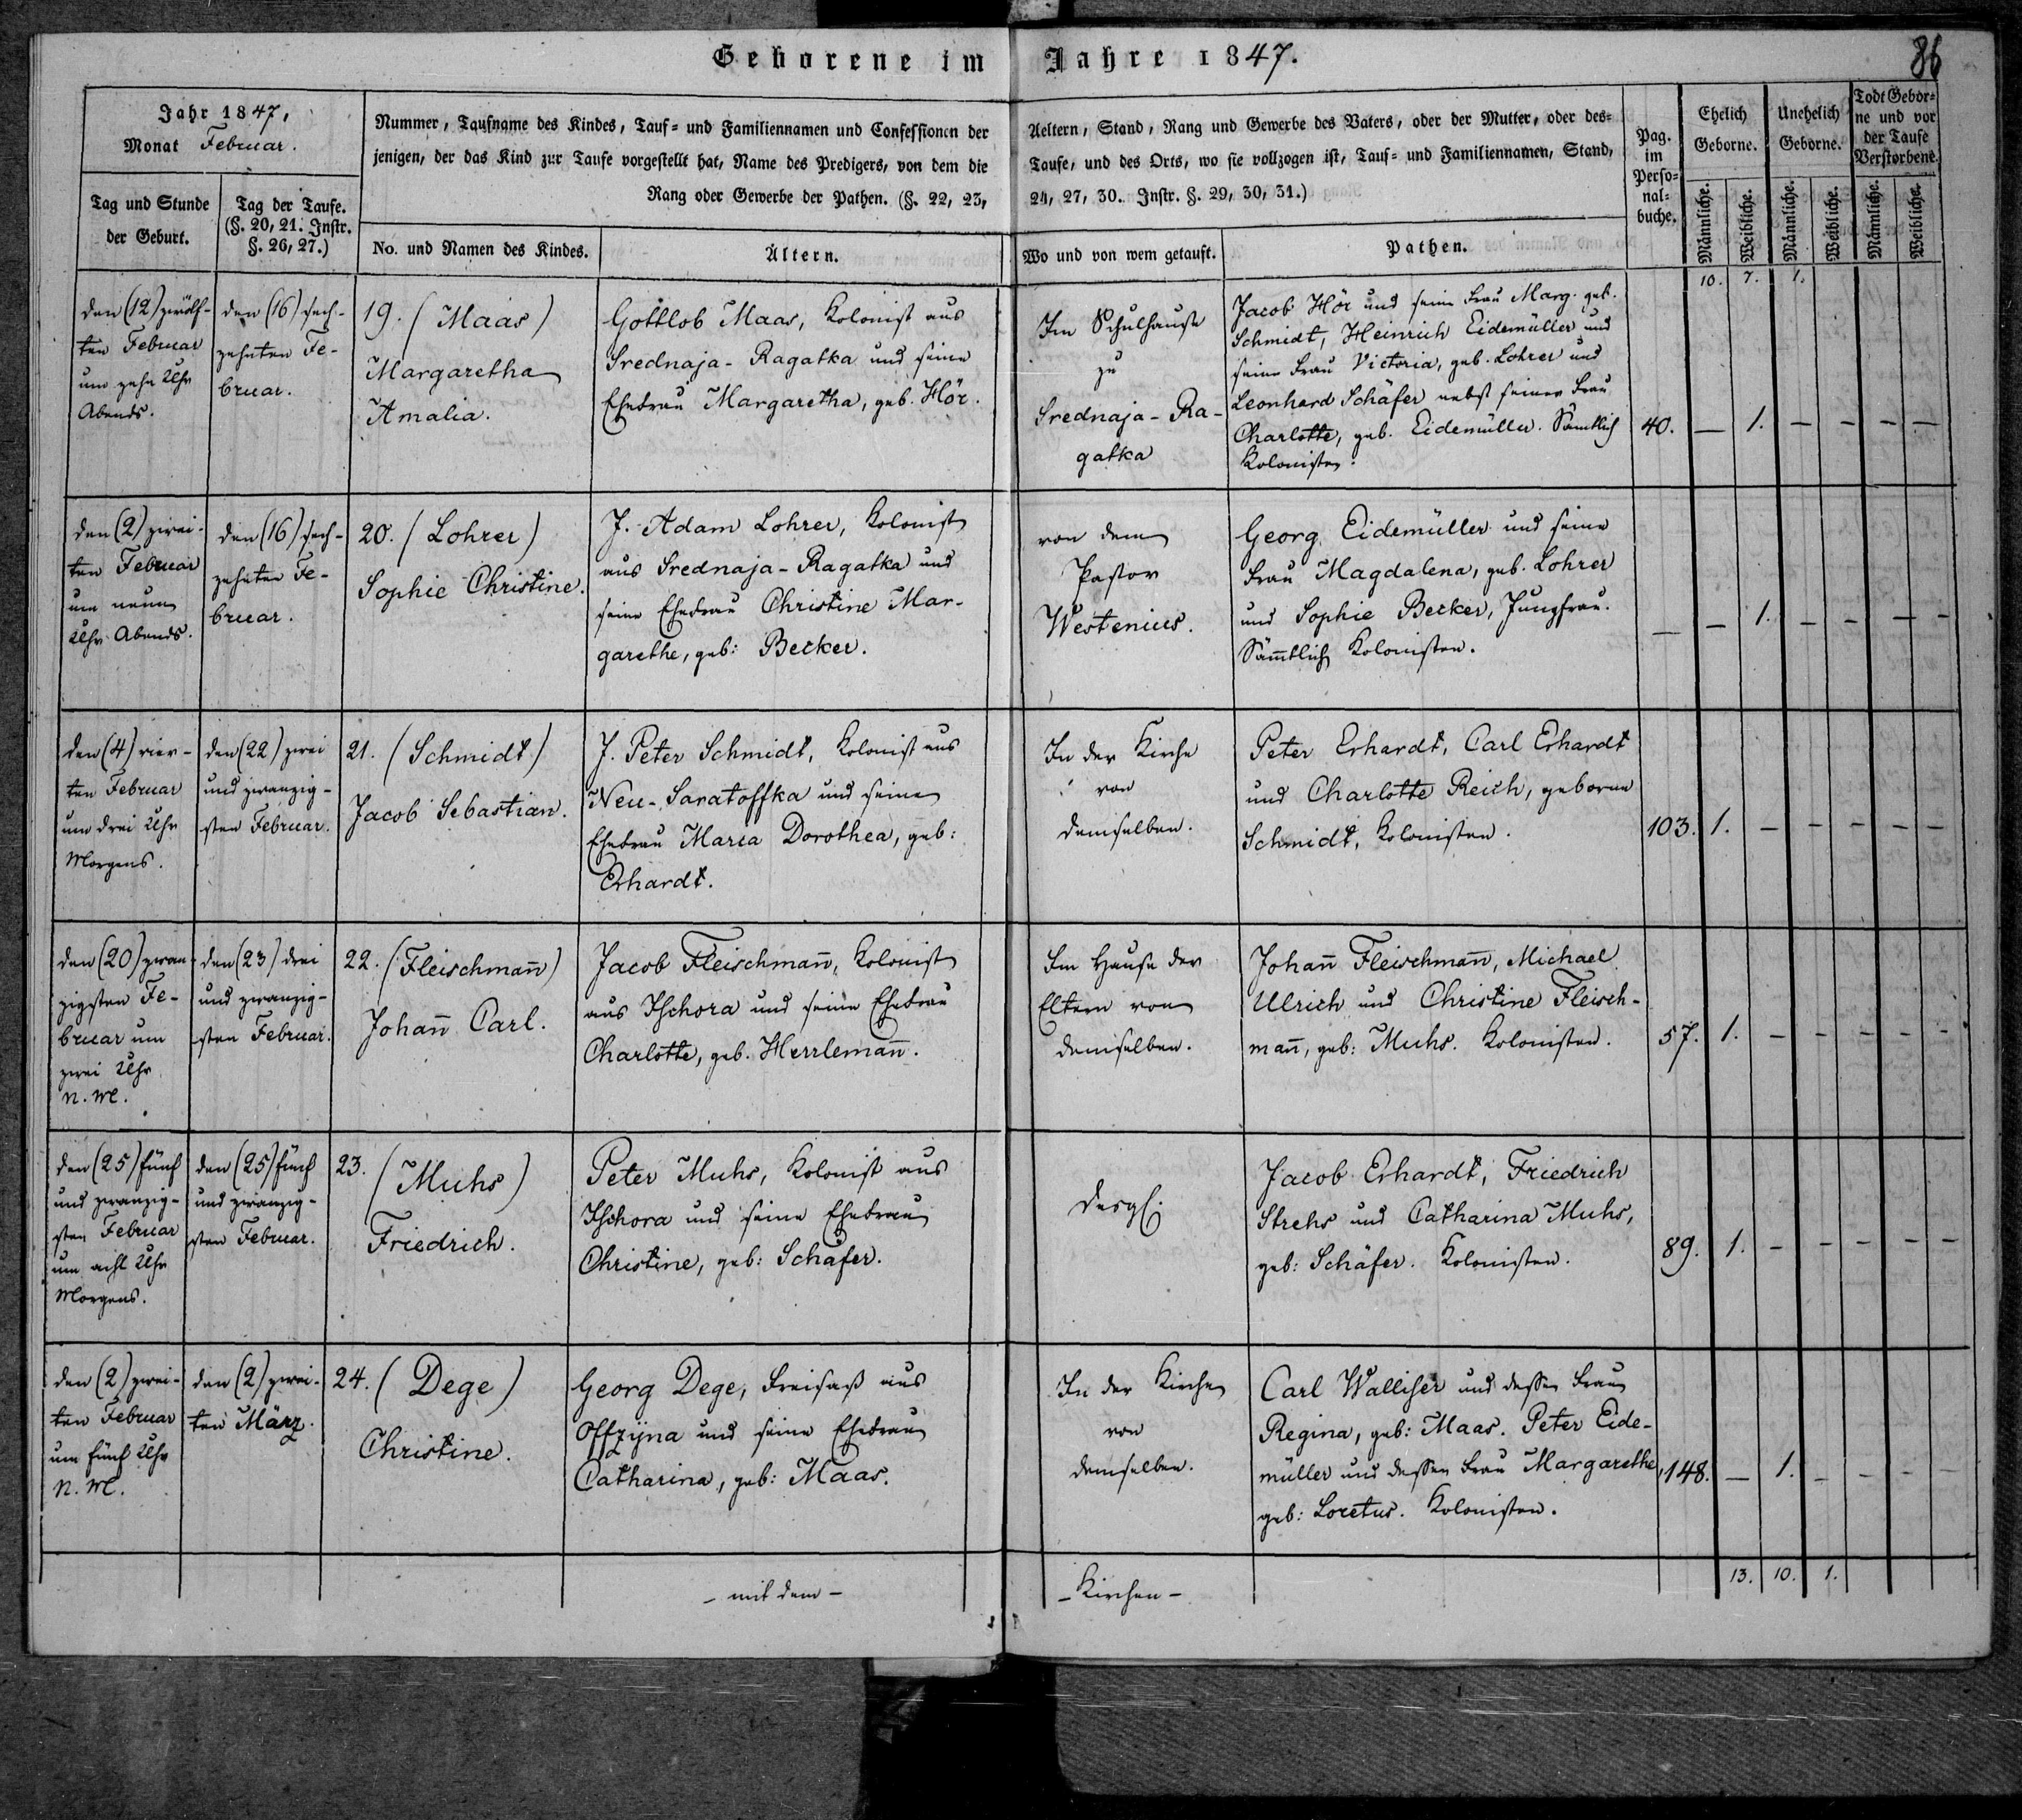 Geborene im Jahre 1847.
86
Jahr 1847,
Monat Februar.
Tag und Stunde
der Geburt.
Tag der Taufe.
(§. 20, 21. Instr.
§. 26, 27.)
Nummer, Taufname des Kindes, Tauf- und Familiennamen und Confessionen der
jenigen, der das Kind zur Taufe vorgestellt hat, Name des Predigers, von dem die
Rang oder Gewerbe der Pathen. (§. 22, 23,
No. und Namen des Kindes.
Ältern.
Aeltern, Stand, Rang und Gewerbe des Vaters, oder der Mutter, oder des-
Taufe, und des Orts, wo sie vollzogen ist, Tauf- und Familiennamen, Stand,
24, 27, 30. Instr. §. 29, 30, 31.)
Wo und von wem getauft.
Pathen.
Pag.
im
Perso-
nal-
buche.
Ehelich
Geborne.
Unehelich
Geborne.
Todt Gebor-
ne und vor
der Taufe
Verstorbene.
Männliche.
Weibliche.
Männliche.
Weibliche.
Männliche.
Weibliche.
10. 7. 1.
den (12) zwölf-
ten Februar
um zehn Uhr
Abends.
den (16) sech-
zehnten Fe-
bruar.
19. (Maas)
Margaretha
Amalia.
Gottlob Maas, Kolonist aus
Srednaja-Ragatka und seine
Ehefrau Margaretha, geb. Hör.
Im Schulhause
zu
Srednaja-Ra-
gatka
Jacob Hör und seine Frau Marg. geb.
Schmidt, Heinrich Eidemüller und
seine Frau Victoria, geb. Lohrer und
Leonhard Schäfer nebst seiner Frau
Charlotte, geb. Eidemüller. Sämtlich
Kolonisten.
40. — 1. — — — —
den (2) zwei-
ten Februar
um neun
Uhr Abends.
den (16) sech-
zehnten Fe-
bruar.
20. (Lohrer)
Sophie Christine.
J. Adam Lohrer, Kolonist
aus Srednaja-Ragatka und
seine Ehefrau Christine Mar-
garethe, geb: Becker.
von dem
Pastor
Westenius.
Georg Eidemüller und seine
Frau Magdalena, geb. Lohrer
und Sophie Becker, Jungfrau.
Sämtlich Kolonisten.
— — 1. — — — —
den (4) vier-
ten Februar
um drei Uhr
Morgens.
den (22) zwei
und zwanzig-
sten Februar.
21. (Schmidt)
Jacob Sebastian.
J. Peter Schmidt, Kolonist aus
Neu-Saratoffka und seine
Ehefrau Maria Dorothea, geb:
Erhardt.
In der Kirche
von
demselben.
Peter Erhardt, Carl Erhardt
und Charlotte Reich, geborne
Schmidt, Kolonisten.
103. 1. — — — — —
den (20) zwan-
zigsten Fe-
bruar um
zwei Uhr
N. M.
den (23) drei
und zwanzig-
sten Februar.
22. (Fleischmañ)
Johañ Carl.
Jacob Fleischmañ, Kolonist
aus Ischora und seine Ehefrau
Charlotte, geb. Herrlemañ.
Im Hause der
Eltern von
demselben.
Johañ Fleischmañ, Michael
Ulrich und Christine Fleisch-
mañ, geb: Muhs. Kolonisten.
57. 1. — — — — —
den (25) fünf
und zwanzig-
sten Februar
um acht Uhr
Morgens.
den (25) fünf
und zwanzig-
sten Februar.
23. (Muhs)
Friedrich.
Peter Muhs, Kolonist aus
Ischora und seine Ehefrau
Christine, geb: Schäfer.
desgl.
Jacob Erhardt, Friedrich
Strehs und Catharina Muhs,
geb: Schäfer. Kolonisten.
89. 1. — — — — —
den (2) zwei-
ten Februar
um fünf Uhr
N. M.
den (2) zwei-
ten März.
24. (Dege)
Christine.
Georg Dege, Freisaß aus
Offzijna und seine Ehefrau
Catharina, geb: Maas.
In der Kirche
von
demselben.
Carl Walliser und dessen Frau
Regina, geb: Maas. Peter Eide-
müller und dessen Frau Margarethe,
geb: Loretus. Kolonisten.
148. — 1. — — — —
13. 10. 1.
- mit dem -
- Kirchen -